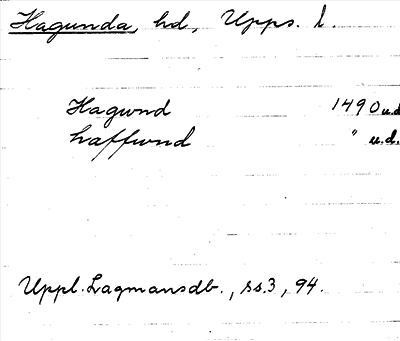 Hagunda, hd, Upps. l.
Hagwnd 1490 u.d.
haffwnd " u.d.
Uppl. Lagmansdb., ss. 3, 94.